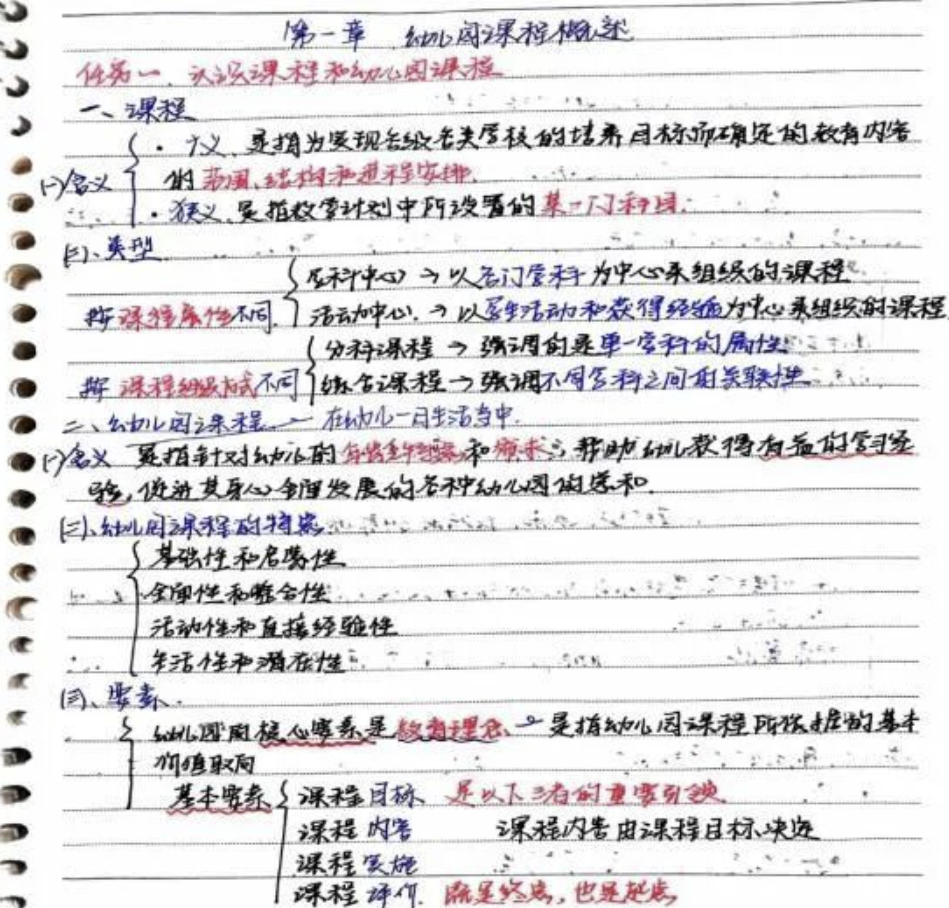 第一章 幼儿园课程概述
任务一、认识课程和幼儿园课程
一、课程
(一)含义
· 广义 是指为实现各级各类学校的培养目标而确定的教育内容
的范围、结构和进程安排.
· 狭义 是指教学计划中所设置的某一门科目.
(二)、类型
按课程属性不同.
学科中心 → 以各门学科为中心来组织的课程
活动中心. → 以学生活动和获得经验为中心来组织的课程
按课程组织方式不同
分科课程 → 强调的是单一学科的属性
综合课程 → 强调不同学科之间的关联性
二、幼儿园课程. — 在幼儿一日生活当中.
(一)含义 是指针对幼儿的和需求, 帮助幼儿获得有益的学习经
验, 促进其身心全面发展的各种幼儿园的总和.
(二)、幼儿园课程的特点
基础性和启蒙性
全面性和整合性
活动性和直接经验性
生活性和潜在性
(三)、要素.
幼儿园的核心要素是教育理念、→ 是指幼儿园课程所依据的基本
价值取向
基本要素
课程目标、是以下三者的重要引领
课程内容 课程内容由课程目标决定
课程实施
课程评价. 既是终点, 也是起点